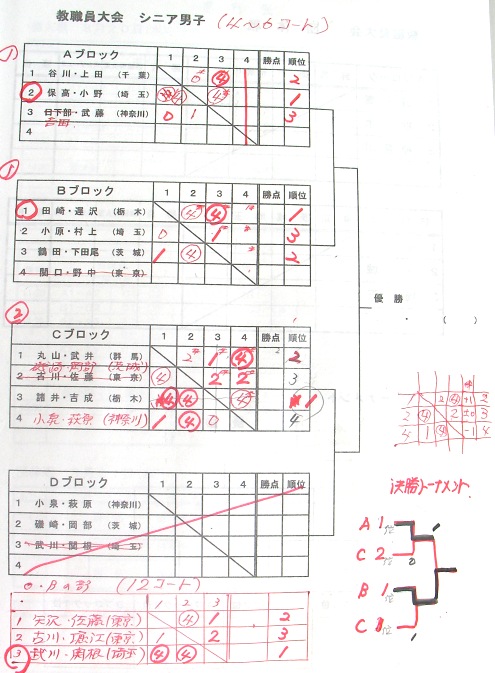 教職員大会 シニア男子 (4〜6コート)
① Aブロック 1 2 3 4 勝点 順位
1 谷川・上田 (千葉) 0 ④ 2
② 保高・小野 (埼玉) ④ ④ 1
3 日下部・武藤 (神奈川) 0 1 3
吉田
4
① Bブロック 1 2 3 4 勝点 順位
① 田崎・遅沢 (栃木) ④ ④ 1
2 小原・村上 (埼玉) 0 1 3
3 鶴田・下田尾 (茨城) 1 ④ 2
4 関口・野中 (東京)
優勝
( )
② Cブロック 1 2 3 4 勝点 順位
1 丸山・武井 (群馬) 2 1 ④ 2 2
磯崎・岡部 (茨城)
2 古川・佐藤 (東京) ④ 2 2 3
3 諸井・吉成 (栃木) ④ ④ ④ 1
4 小泉・萩原 (神奈川) 1 ④ 0 4
4
1 2 ④ +1 2
2 ④ 2 ±0 3
4 1 ④ -1 4
Dブロック 1 2 3 4 勝点 順位
1 小泉・萩原 (神奈川)
2 磯崎・岡部 (茨城)
3 武川・関根 (埼玉)
4
決勝トーナメント
A 1位
C 2位
B 1位
C 1位
0
(12コート)
1 2 3
1 矢沢・佐藤 (東京) ④ 1 2
2 古川・廣江 (東京) 1 2 3
③ 武川・関根 (埼玉) ④ ④ 1